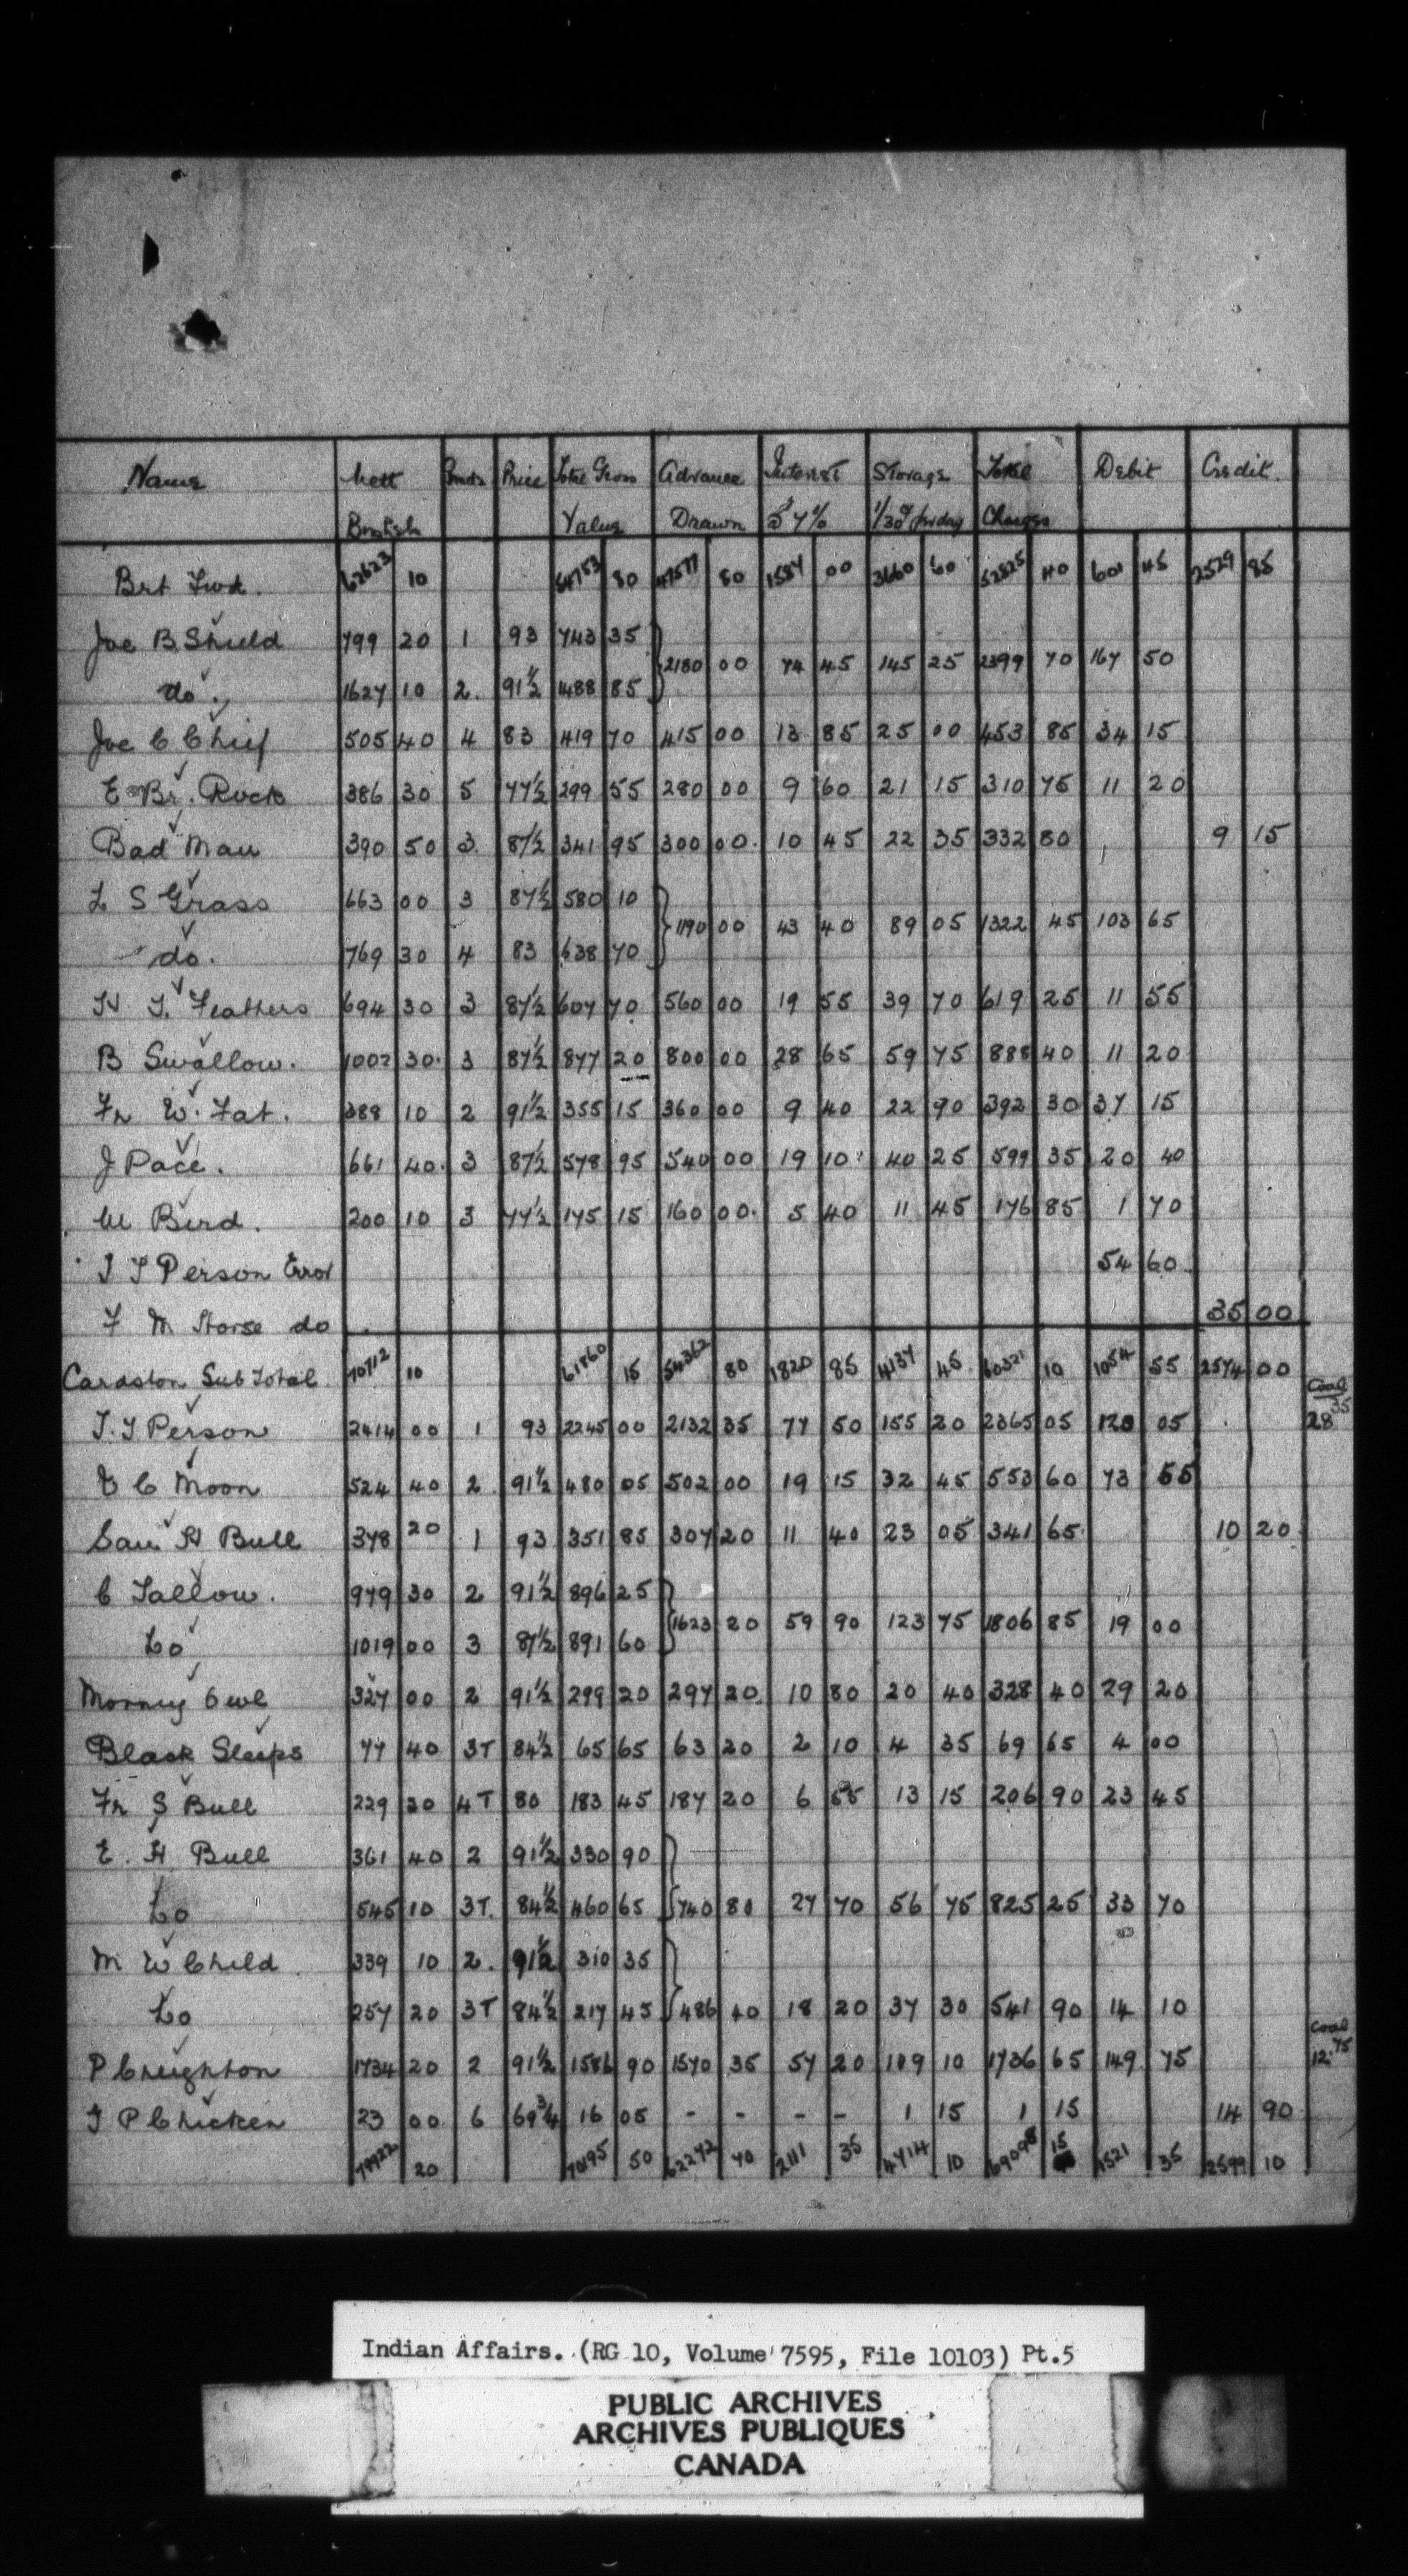 Name Nett Grade Price Total Gross Advance Interest Storage Total Debit Credit.
Bushels Value Drawn @ 7% 1/30 ¢ per day Charges
Brt Fwd. 62623 10 54753 80 47577 80 1587 00 3660 60 52825 40 601 45 2529 85
Joe B. Shield 799 20 1 93 743 35
2180 00 74 45 145 25 2399 70 167 50
do. 1627 10 2. 91½ 1488 85
Joe C Chief 505 40 4 83 419 70 415 00 13 85 25 00 453 85 34 15
E Br. Rock 386 30 5 77½ 299 55 280 00 9 60 21 15 310 75 11 20
Bad Man 390 50 3. 87½ 341 95 300 00. 10 45 22 35 332 80 9 15
L S Grass 663 00 3 87½ 580 10
1190 00 43 40 89 05 1322 45 103 65
do. 769 30 4 83 638 70
H. T. Feathers 694 30 3 87½ 607 70 560 00 19 55 39 70 619 25 11 55
B Swallow. 1002 30. 3 87½ 877 20 800 00 28 65 59 75 888 40 11 20
Fr W. Fat. 388 10 2 91½ 355 15 360 00 9 40 22 90 392 30 37 15
J Pace. 661 40. 3 87½ 578 95 540 00 19 10 40 25 599 35 20 40
W Bird. 200 10 3 77½ 175 15 160 00. 5 40 11 45 176 85 1 70
T T Person Error 54 60.
F M Horse do 35 00
Cardston Sub Total 70712 10 61860 15 54362 80 1820 85 4137 45 60321 10 1054 55 2574 00
Coal
T. T Person 2414 00 1 93 2245 00 2132 35 77 50 155 20 2365 05 120 05 28 35
C Moon 524 40 2. 91½ 480 05 502 00 19 15 32 45 553 60 73 55
Sam H Bull 378 20 1 93 351 85 307 20 11 40 23 05 341 65. 10 20
C Tallow. 979 30 2 91½ 896 25
1623 20 59 90 123 75 1806 85 19 00
Do 1019 00 3 87½ 891 60
Morning Owl 327 00 2 91½ 299 20 297 20. 10 80 20 40 328 40 29 20
Black Sleeps 77 40 3T 84½ 65 65 63 20 2 10 4 35 69 65 4 00
Fr S Bull 229 20 4T 80 183 45 187 20 6 55 13 15 206 90 23 45
E. H. Bull 361 40 2 91½ 330 90
Do 545 10 3T. 84½ 460 65 740 80 27 70 56 75 825 25 33 70
M W Child. 339 10 2. 91½ 310 35
Do 257 20 3T 84½ 217 45 486 40 18 20 37 30 541 90 14 10
Coal
P Creighton 1734 20 2 91½ 1586 90 1570 35 57 20 109 10 1736 65 149 75 12.75
T P Chicken 23 00 6 69¾ 16 05 - - - - 1 15 1 15 14 90
79922 20 70195 50 62272 70 2111 35 4714 10 69098 15 1521 35 2599 10
Indian Affairs. (RG 10, Volume 7595, File 10103) Pt.5
PUBLIC ARCHIVES
ARCHIVES PUBLIQUES
CANADA